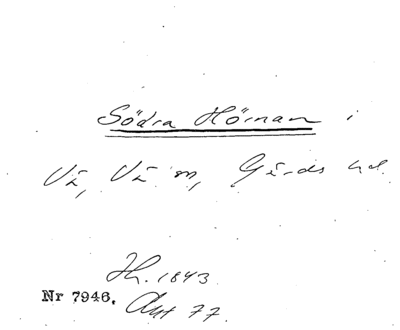 Södra Hörnan i
Vä, Vä sn, Gärds hd
Hh. 1843
Nr 7946. Akt 77